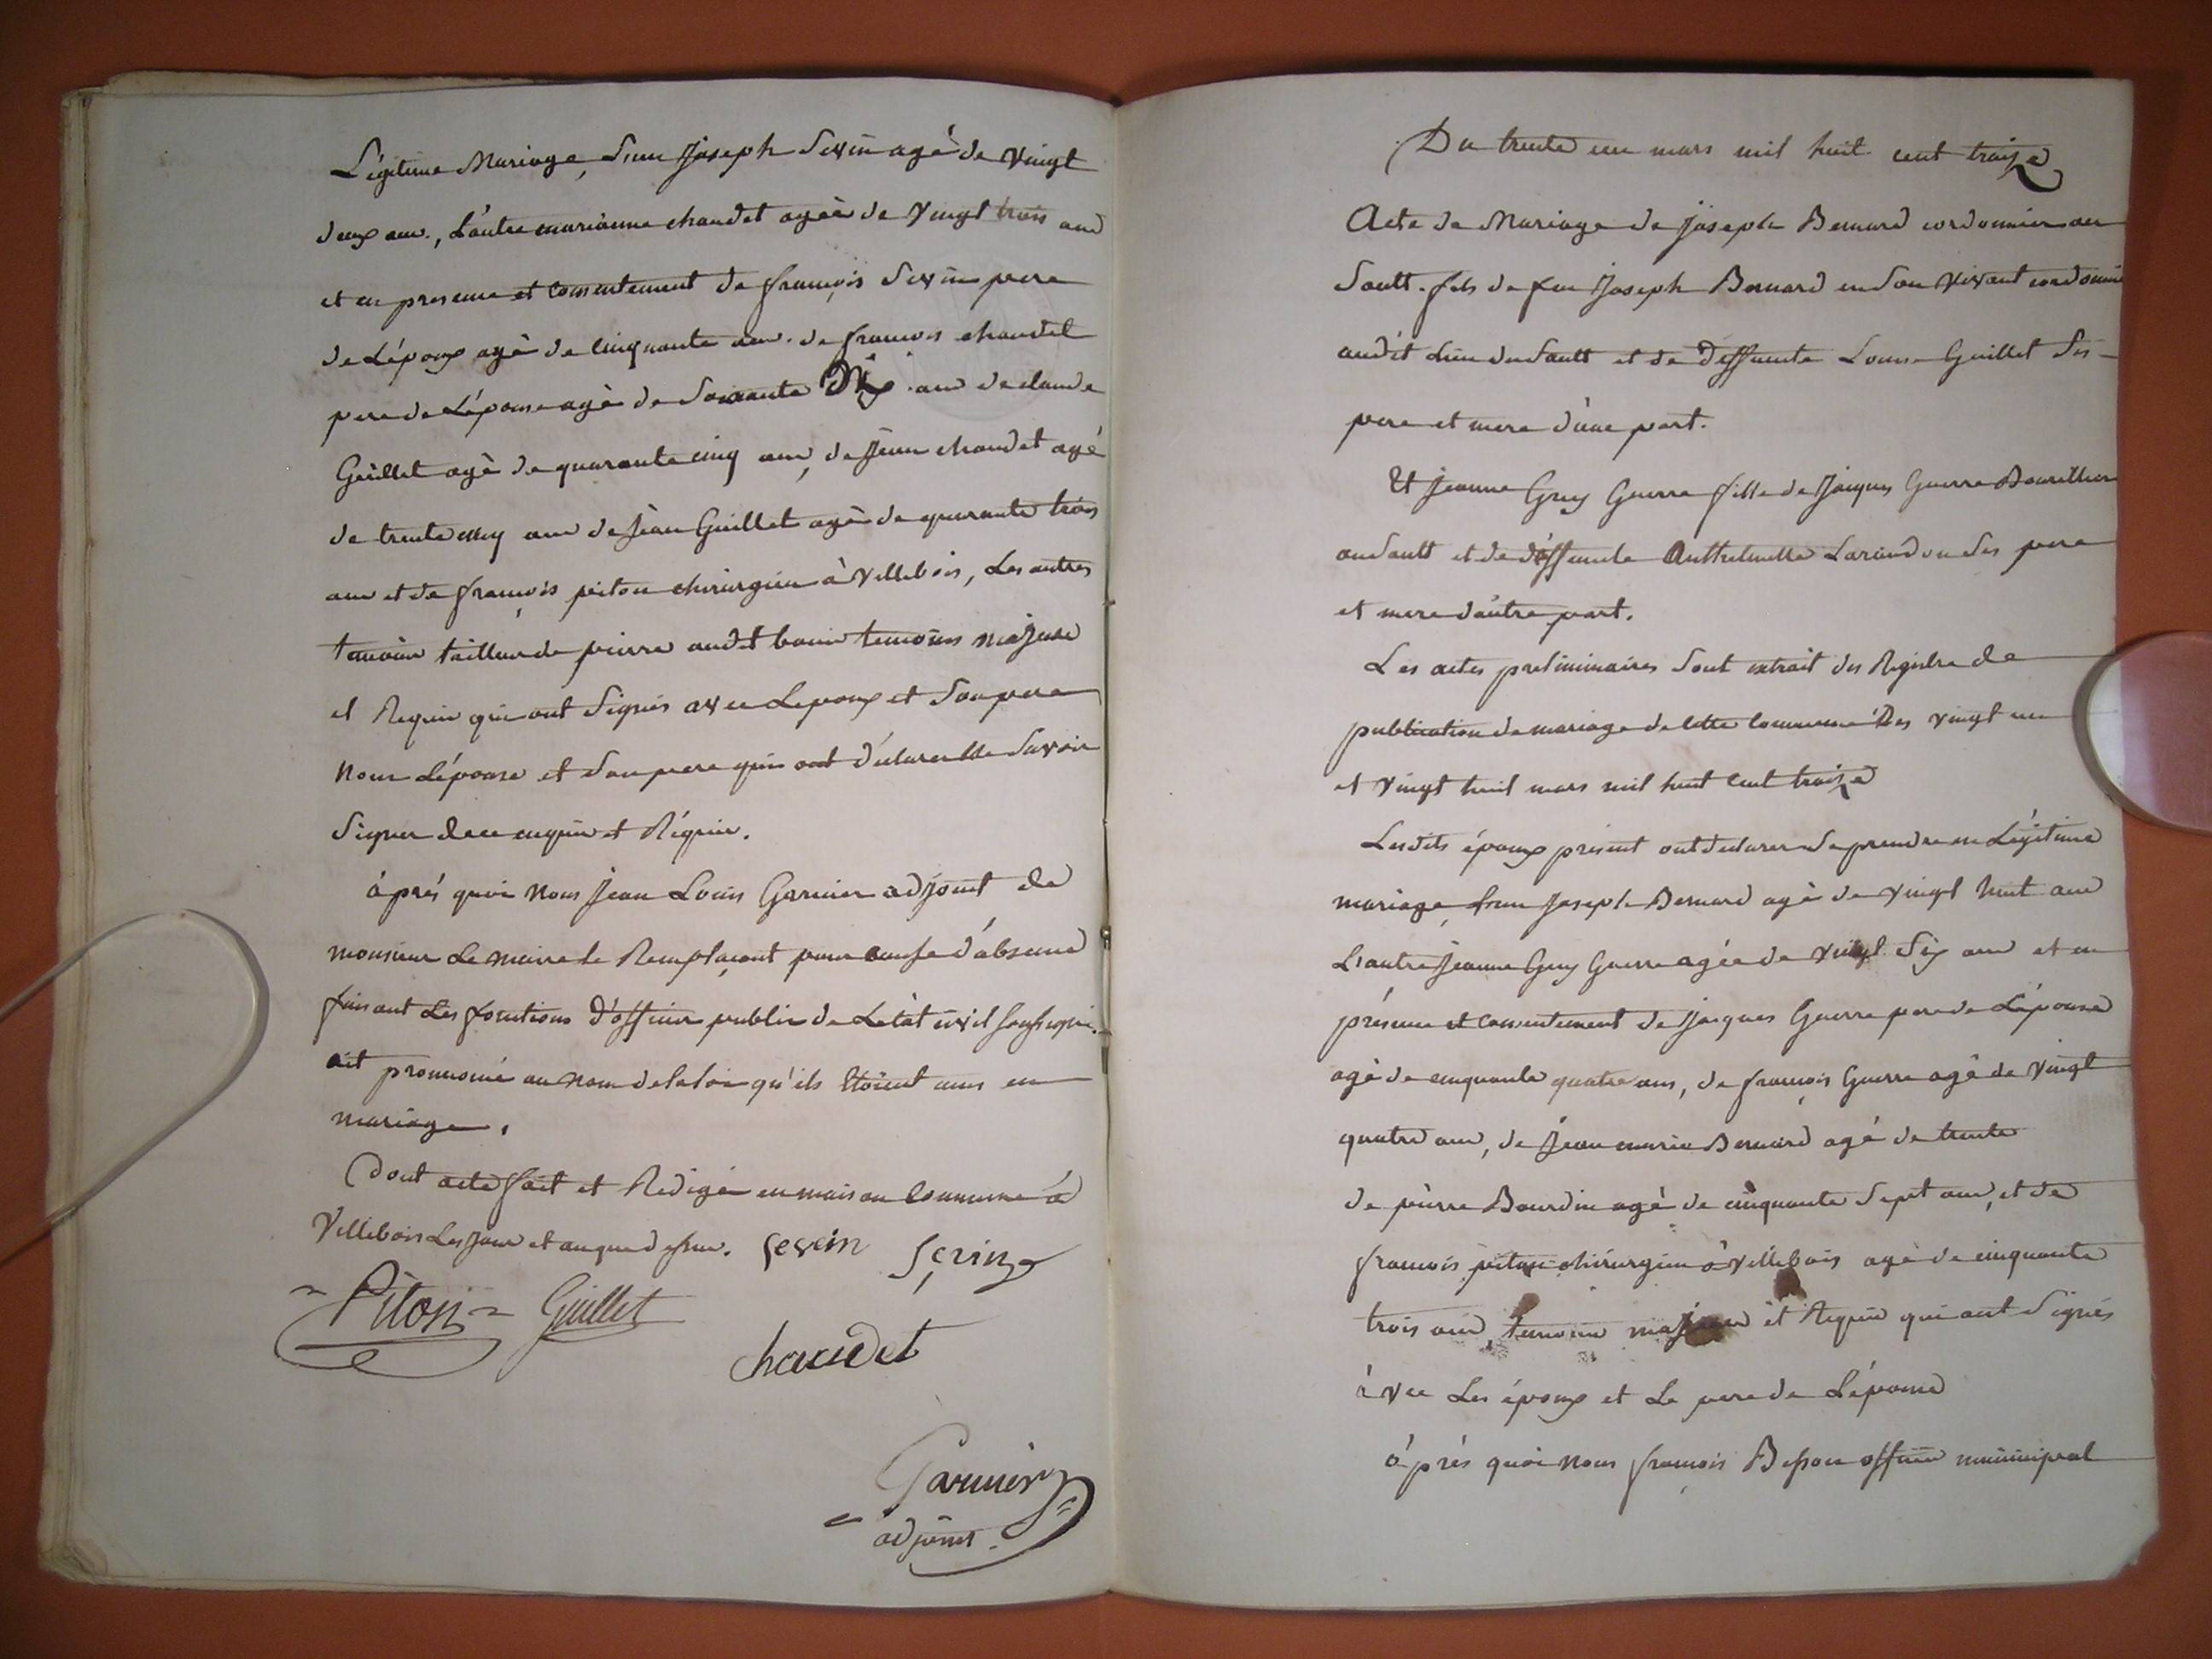 Légitime Mariage, L'un Joseph Sevin agé de vingt
deux ans, L'autre marianne chaudet agée de Vingt trois ans
et en presence et consentement de françois Sevin pere
de L'époux agé de cinquante ans. de francois chaudet
pere de L'épouse agé de Soixante Dix ans de claude
Guillet agé de quarante cinq ans, de Jean chaudet agé
de trente cinq ans de Jean Guillet agé de quarante trois
ans et de françois piton chirurgien à Villebois, Les autres
temoins tailleur de pierre audit temoins majeure
et Requis qui ont Signés avec Lepoux et Son pere
Non L'épouse et Son pere qui ont déclarer Ne Savoir
Signer de ce enquis et Réquis.
àprés quoi Nous Jean Louis Garnier adjoint de
monsieur Le maire Le Remplaçant pour cause d'absence
faisant Les fonctions d'officier public de L'état civil soussigné.
ait prononcé au Nom de la loi qu'ils étoient unis en
mariage.
Dont acte fait et Redigé en maison Commune à
Villebois Les Jour et an que dessus. Sevin Sevin
Piton Guillet
chaudet
Garnier
adjoint
Du trente un mars mil huit cent traize
Acte de Mariage de Joseph Bernard cordonnier au
Sault. fils de feu Joseph Bernard en Son Vivant cordonnier
audit Lieu du Sault et de deffunte Louise Guillet Ses
pere et mere d'une part.
Et Jeanne Guy Guerre fille de Jacques Guerre Bourellier
au Sault et de déffunte Anthelmette Ses pere
et mere d'autre part.
Les actes preliminaires Sont extrait des Registre de
publication de mariage de cette Commune Des vingt un
et Vingt huit mars mil huit Cent traize
Lesdits époux présent ont declarer Se prendre en Légitime
mariage, L'un Joseph Bernard agé de Vingt huit ans
L'autre Jeanne Guy Guerre agée de Vingt Six ans et en
présence et Consentement de Jacques Guerre pere de L'épouse
agé de cinquante quatre ans, de françois Guerre agé de Vingt
quatre ans, de Jean marie Bernard agé de trente
de piérre Bourdin agé de cinquante Sept ans, et de
francois piton chirurgien à Villebois agé de cinquante
trois ans, temoins majeure et Requis qui ont Signés
àvec Les époux et Le pere de L'épouse
àprés quoi Nous françois Besson officier municipal